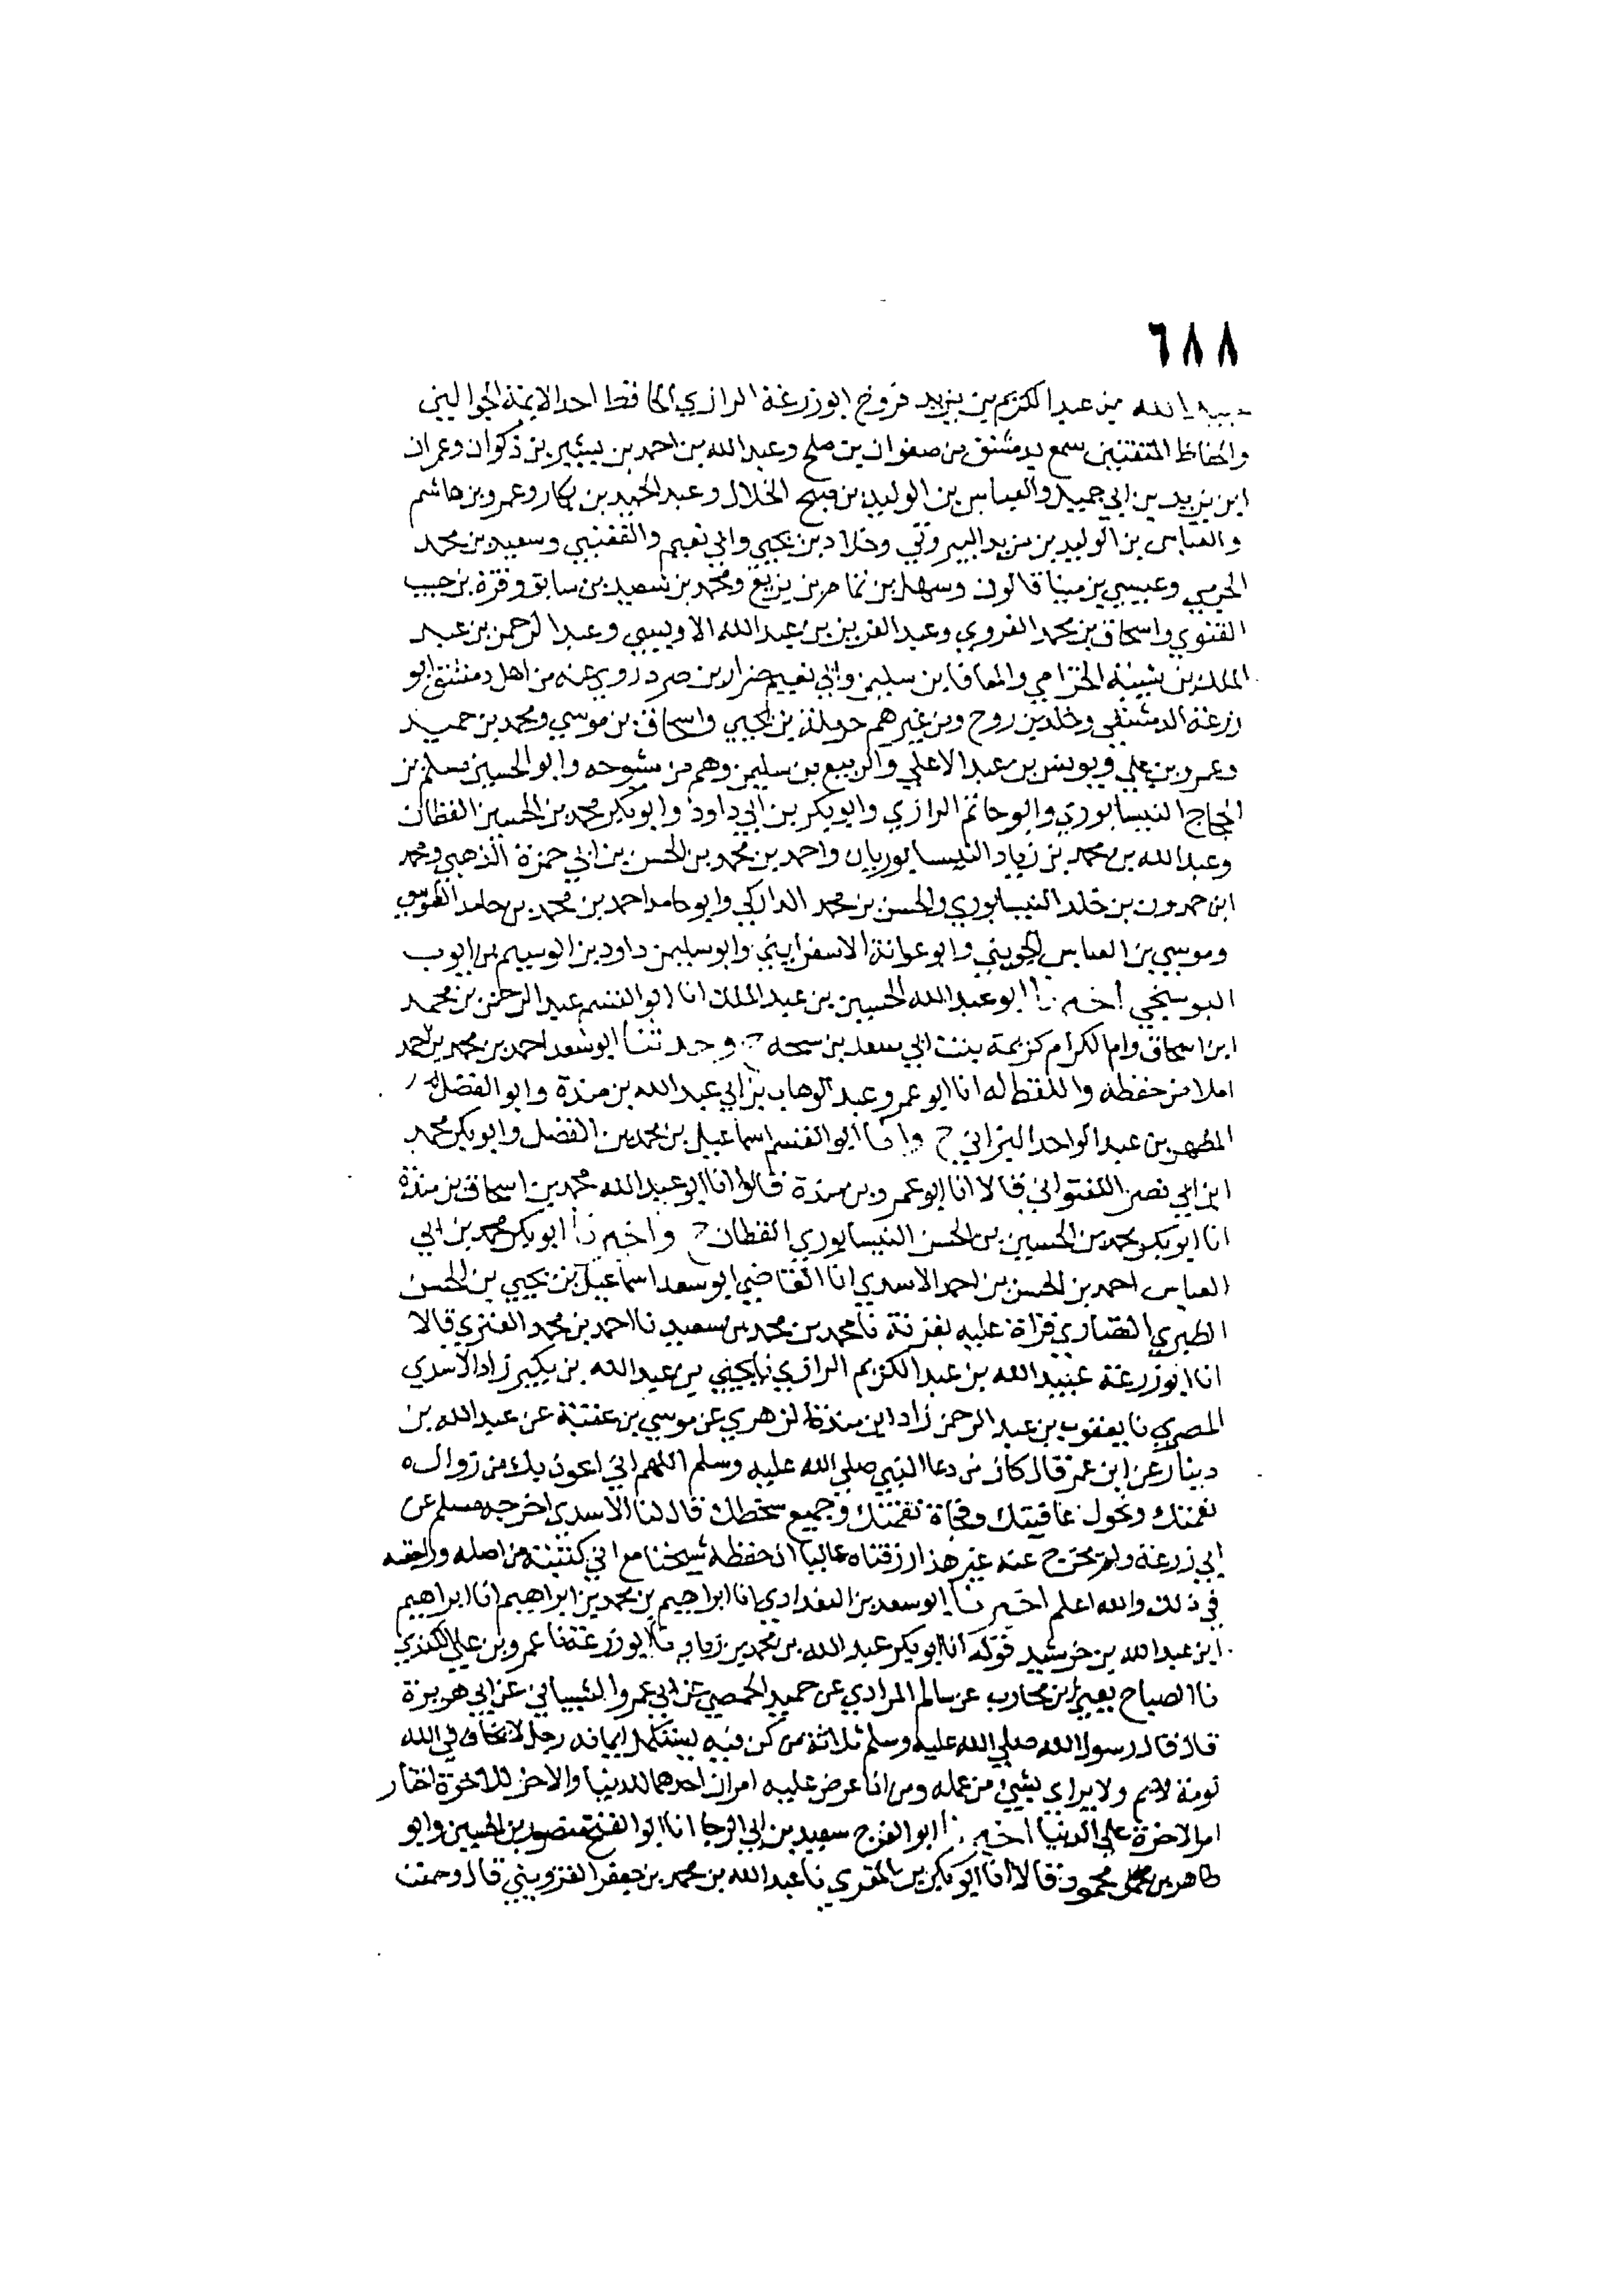 ٦٨٨
عبيد الله بن عبد الكريم بن يزيد فروخ ابو زرعة الرازي الحافظ احد الايمة الجوالين
والحفاظ المتقنين سمع بدمشق من صفوان بن صلح وعبد الله بن احمد بن بشير بن ذكوان وعمران
ابن يزيد بن ابي جميل والعباس بن الوليد بن صبح الخلال وعبد الحميد بن بكار وعمرو بن هاشم
والعباس بن الوليد بن مزيد البيروتي وخلاد بن يحيي وابي نعيم والقعنبي وسعيد بن محمد
الجرمي وعيسي بن مينا قالون وسهل بن تمام بن بزيع ومحمد بن سعيد بن سابق وقرة بن حبيب
القنوي واسحاق بن محمد الفروي وعبد العزيز بن عبد الله الاويسي وعبد الرحمن بن عبد
الملك بن شيبة الحزامي والمعافا بن سليمن وابي نعيم ضرار بن صرد روي عنه من اهل دمشق ابو
زرعة الدمشقي وخلد بن روح ومن غيرهم حرملة بن يحيي واسحاق بن موسي ومحمد بن حميد
وعمرو بن علي ويونس بن عبد الاعلي والربيع بن سليمن وهم من شيوخه وابو الحسين مسلم بن
الحجاج النيسابوري وابو حاتم الرازي وابو بكر بن ابي داود وابو بكر محمد بن الحسين القطان
وعبد الله بن محمد بن زياد النيسابوريان واحمد بن محمد بن الحسن بن ابي حمزة الذهبي ومحمد
ابن حمدون بن خلد النيسابوري والحسن بن محمد الداركي وابو حامد احمد بن محمد بن حامد الطوسي
وموسي بن العباس الجويني وابو عوانة الاسفرايني وابو سليمن داود بن الوسيم بن ايوب
البوسنجي اخبرنا ابو عبد الله الحسين بن عبد الملك انا ابو القسم عبد الرحمن بن محمد
ابن اسحاق وام الكرام كريمة بنت ابي سعد بن ح وحدثنا ابو سعد احمد بن محمد بن احمد
املا من حفظه واللفظ له انا ابو عمرو عبد الوهاب بن ابي عبد الله بن مندة وابو الفضل
المطهر بن عبد الواحد البزاني ح وانا ابو القسم اسماعيل بن محمد بن الفضل وابو بكر محمد
ابن ابي نصر اللفتواني قالا انا ابو عمرو بن مندة قالوا انا ابو عبد الله محمد بن اسحاق بن مندة
انا ابو بكر محمد بن الحسين بن الحسن النيسابوري القطان ح واخبرنا ابو بكر محمد بن ابي
العباس احمد بن الحسن بن احمد الاسدي انا القاضي ابو سعد اسماعيل بن يحيي بن الحسن
الطبري قراة عليه بغزنة نا محمد بن محمد بن سعيد نا احمد بن محمد العنزي قالا
انا ابو زرعة عبيد الله بن عبد الكريم الرازي نا يحيي بن عبد الله بن بكير زاد الاسدي
المصري نا يعقوب بن عبد الرحمن زاد ابن مندة الزهري عن موسي بن عقبة عن عبد الله بن
دينار عن ابن عمر قال كان من دعا النبي صلي الله عليه وسلم اللهم اني اعوذ بك من زوال
نعمتك وتحول عافيتك وفجاة نقمتك وجميع سخطك قال لنا الاسدي اخرجه مسلم عن
ابي زرعة ولم يخرج عنه غير هذا رزقناه عاليا حفظه شيخنا مع اني كتبته من اصله
في ذلك والله اعلم اخبرنا ابو سعد بن البغدادي انا ابراهيم بن محمد بن ابراهيم انا ابراهيم
ابن عبد الله بن خرشيد قوله انا ابو بكر عبد الله بن محمد بن زياد نا ابو زرعة نا عمرو بن علي الكندي
نا الصباح يعني ابن محارب عن سالم المرادي عن حميد الحمصي عن ابي عمرو الشيباني عن ابي هريرة
قال قال رسول الله صلي الله عليه وسلم ثلاثة من كن فيه يستكمل ايمانه رجل لا يخاف في الله
لومة لايم ولا يراي بشي من عمله ومن اذا عرض عليه امران احدهما للدنيا والاخر للاخرة اختار
امر الاخرة علي الدنيا اخبرنا ابو الفرج سعيد بن ابي الرجا انا ابو الفتح منصور بن الحسين وابو
طاهر بن محمود قالا انا ابو بكر بن المقري نا عبد الله بن محمد بن جعفر القزويني قال وحمت